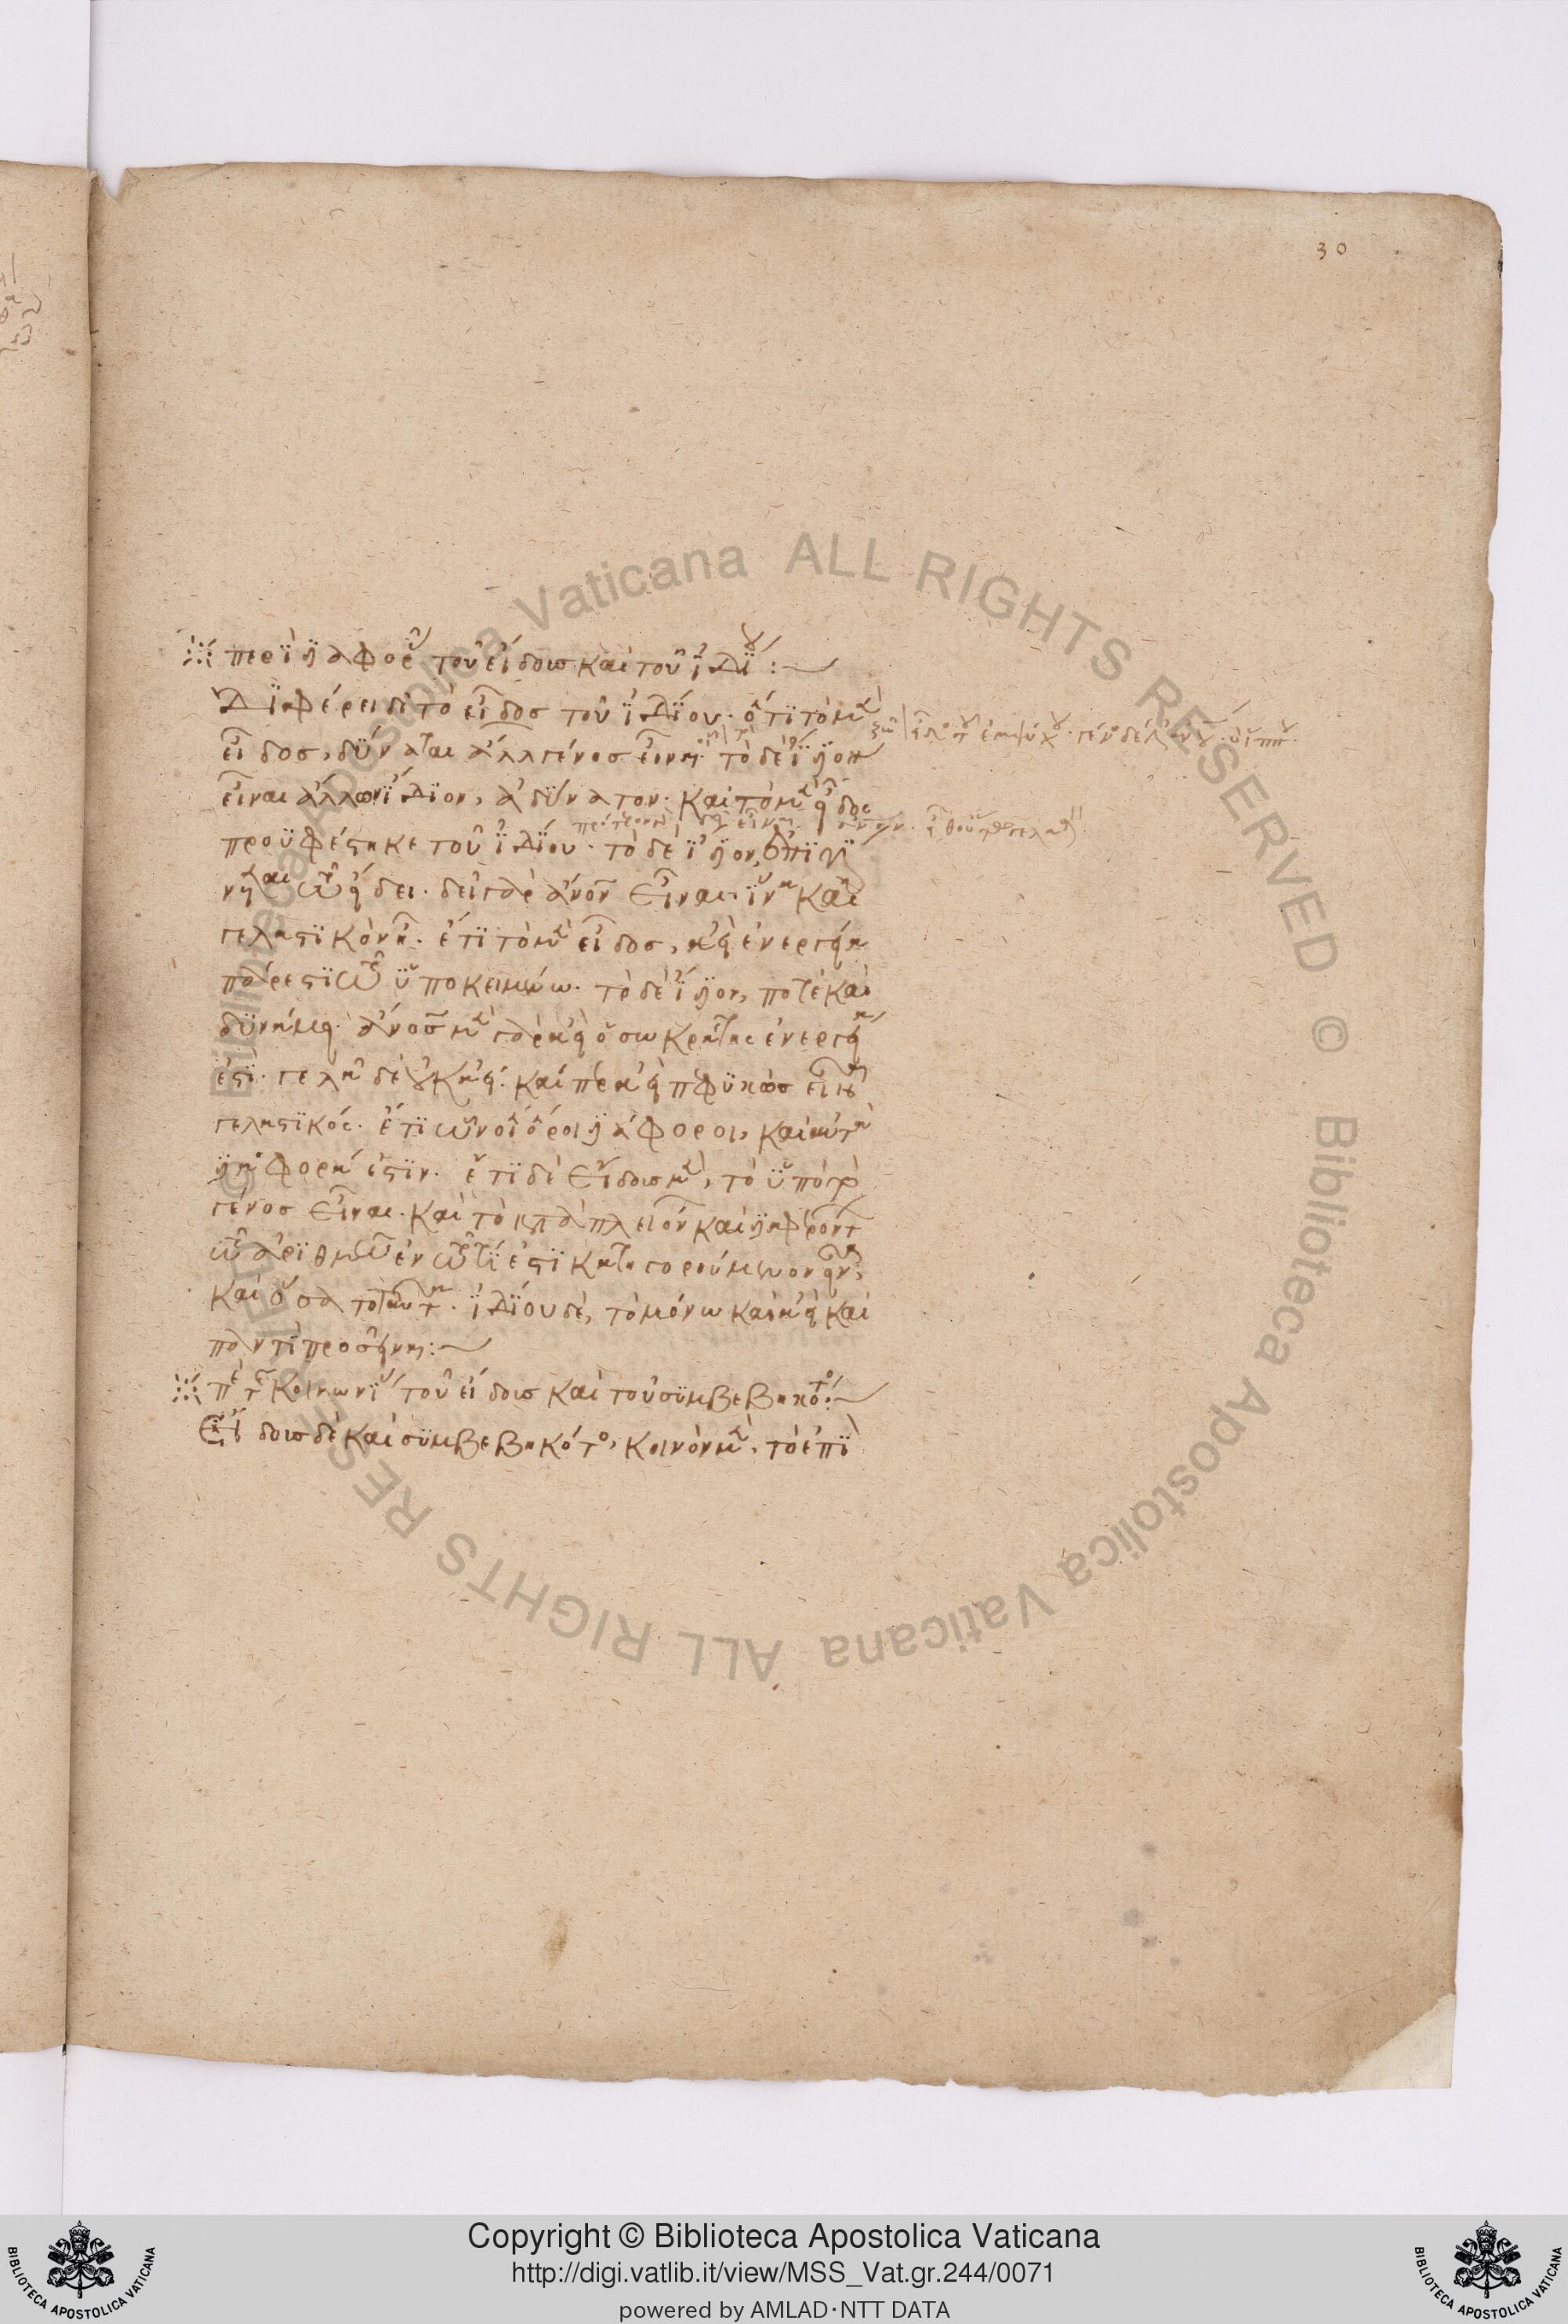 30
περὶ διαφορᾶς τοῦ εἴδους καὶ τοῦ ἰδίου :
Διαφέρει δὲ τὸ εἶδος τοῦ ἰδίου· ὅτι τὸ μὲν
εἶδος, δύναται ἄλλων γένος εἶναι· τὸ δὲ ἴδιον
εἶναι ἄλλων ἴδιον, ἀδύνατον· καὶ τὸ μὲν εἶδος
προϋφέστηκε τοῦ ἰδίου· τὸ δὲ ἴδιον, ἐπιγί
νεται τῷ εἴδει· δεῖ γὰρ ἄνον εἶναι ἵνα καὶ
γελαστικὸν ᾖ· ἔτι τὸ μὲν εἶδος, ἀεὶ ἐνεργείᾳ
πάρεστι τῷ ὑποκειμένω· τὸ δὲ ἴδιον, ποτὲ καὶ
δυνάμει· ἄνος μὲν γὰρ ἀεὶ ὁ σωκράτης ἐνεργείᾳ
ἐστί· γελᾷ δὲ οὐκ ἀεί· καίπερ ἀεὶ πεφυκὼς εἶναι
γελαστικός· ἔτι ὧν οἱ ὅροι διάφοροι, καὶ αὐτὰ
διάφορά ἐστιν· ἔτι δὲ εἴδους μὲν, τὸ ὑπὸ τὸ
γένος εἶναι· καὶ τὸ κατὰ πλειόνων καὶ διαφερόντων
τῷ ἀριθμῷ ἐν τῷ τί ἐστι κατηγορούμενον εἶναι,
καὶ ὅσα τοιαῦτα· ἰδίου δὲ, τὸ μόνω καὶ ἀεὶ καὶ
παντὶ προσεῖναι :
περὶ τῆς κοινωνίας τοῦ εἴδους καὶ τοῦ συμβεβηκότος :
Εἴδους δὲ καὶ συμβεβηκότος, κοινὸν μὲν, τὸ ἐπὶ
Biblioteca Apostolica Vaticana ALL RIGHTS RESERVED ©
Copyright © Biblioteca Apostolica Vaticana
http://digi.vatlib.it/view/MSS_Vat.gr.244/0071
powered by AMLAD·NTT DATA
BIBLIOTECA APOSTOLICA VATICANA
BIBLIOTECA APOSTOLICA VATICANA